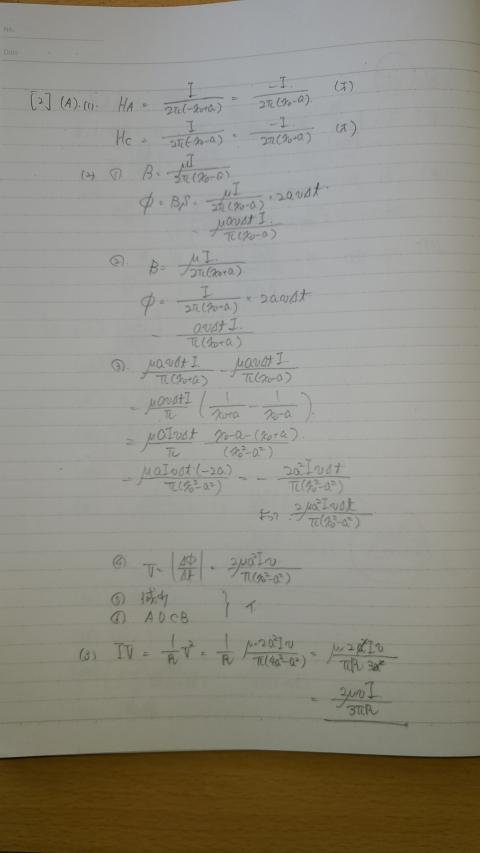 No.
Date
[2] (A). (1). HA = I / 2π(-x₀+a) = -I / 2π(x₀-a) (オ)
HC = I / 2π(-x₀-a) = -I / 2π(x₀+a) (オ)
(2) ① B = μI / 2π(x₀-a)
Φ = BS = μI / 2π(x₀-a) × 2avΔt
= μavΔt I / π(x₀-a)
②. B = μI / 2π(x₀+a)
Φ = I / 2π(x₀+a) × 2avΔt
= avΔt I / π(x₀+a)
③. μavΔt I / π(x₀+a) - μavΔt I / π(x₀-a)
= μavΔt I / π ( 1 / x₀+a - 1 / x₀-a ).
= μaIvΔt / π x₀-a-(x₀+a) / (x₀²-a²)
= μaIvΔt(-2a) / π(x₀²-a²) = - 2a²IvΔt / π(x₀²-a²)
よって 2μa²IvΔt / π(x₀²-a²)
④ V = |ΔΦ / Δt| = 2μa²Iv / π(x₀²-a²)
⑤ 減少
⑥ ADCB. } イ
(3) IV = 1/R V² = 1/R μ·2a²Iv / π(4a²-a²) = μ·2a²Iv / πR 3a²
= 2μvI / 3πR